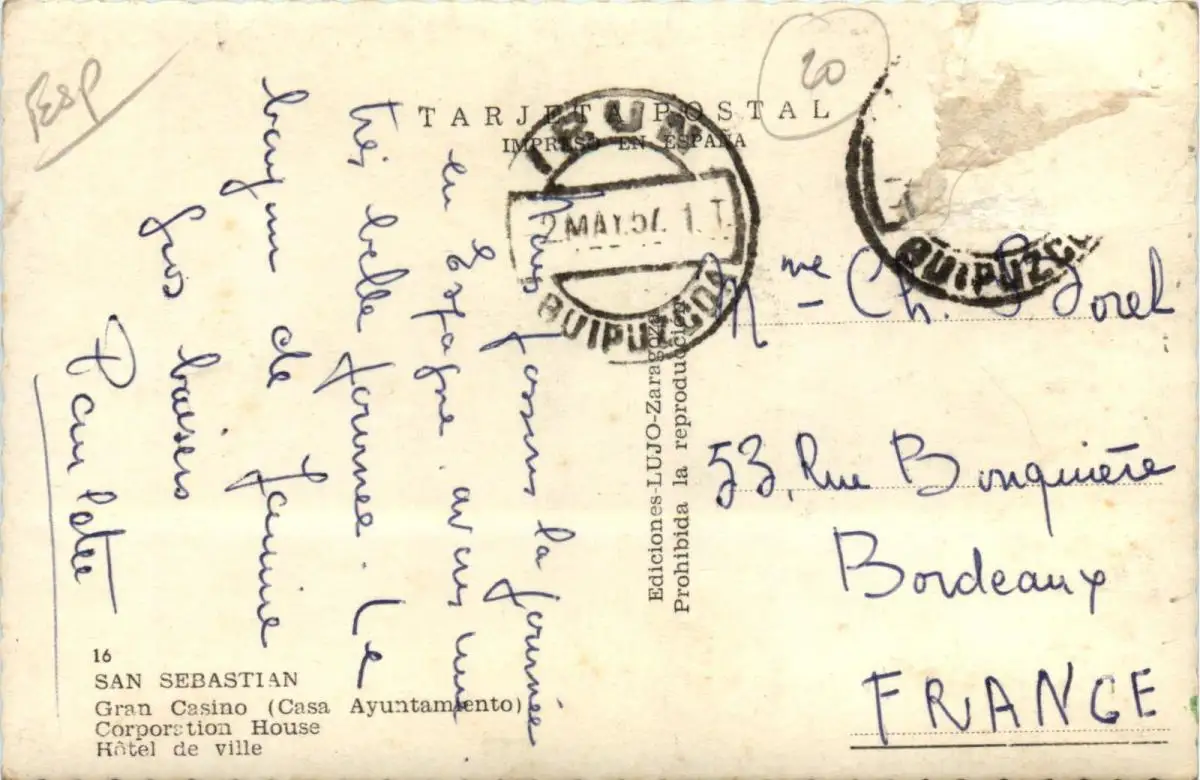 Esp
20
TARJETA POSTAL
IMPRESO EN ESPAÑA
IRUN
2 MAY.57. 1 T.
GUIPUZCOA
GUIPUZCO
Nous passons la journée
en Espagne avons une
très belle journée. Le
de Janine
Gros baisers
Paulette
Mme Ch. Sorel
53, Rue Bouquière
Bordeaux
FRANCE
Ediciones-LUJO-Zaragoza
Prohibida la reproducción
16
SAN SEBASTIAN
Gran Casino (Casa Ayuntamiento)
Corporation House
Hôtel de ville